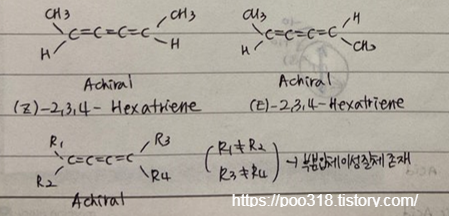 CH3 CH3
C=C=C=C
H H
Achiral
(Z)-2,3,4- Hexatriene
CH3 H
C=C=C=C
H CH3
Achiral
(E)-2,3,4-Hexatriene
R1 R3
C=C=C=C
R2 R4
Achiral
(R1≠R2
R3≠R4) → 부분입체이성질체 존재
https://poo318.tistory.com/